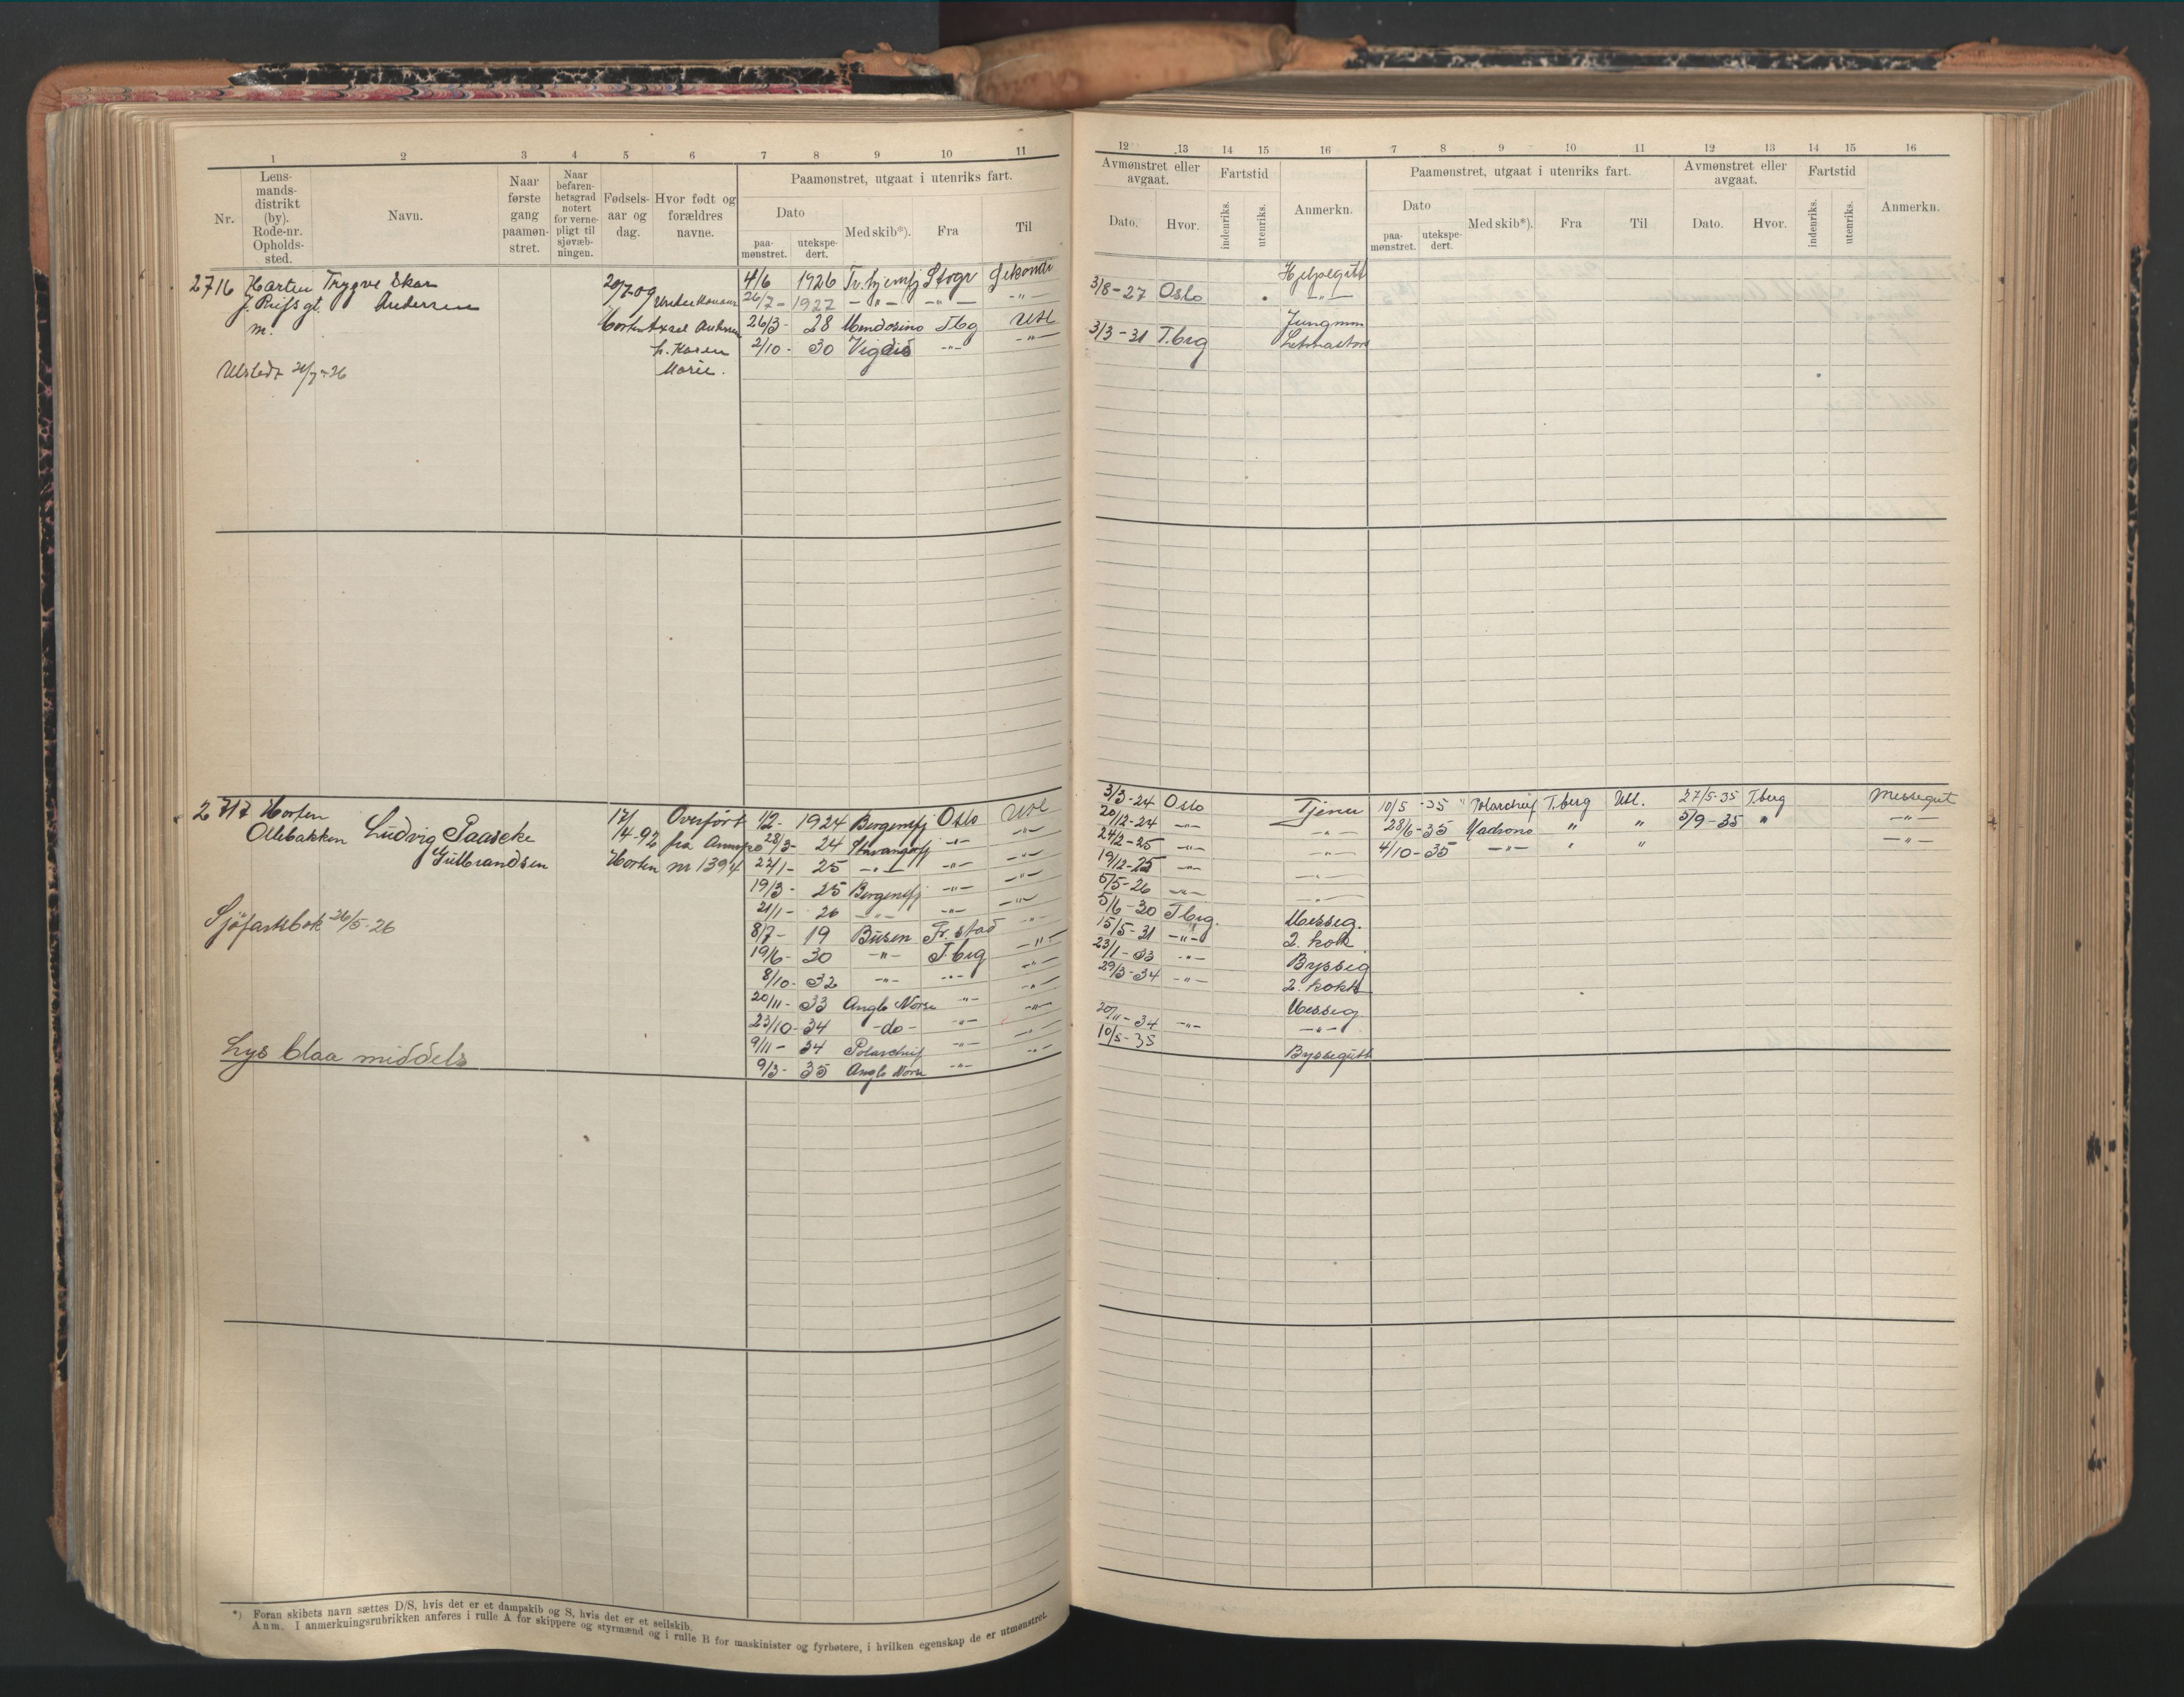 1 2 3 4 5 6 7 8 9 10 11
Nr.
Lens-
mands-
distrikt
(by).
Rode-nr.
Opholds-
sted.
Navn.
Naar
første
gang
paamøn-
stret.
Naar
befaren-
hetsgrad
notert
for verne-
pligt til
sjøvæb-
ningen.
Fødsels-
aar og
dag.
Hvor født og
forældres
navne.
Paamønstret, utgaat i utenriks fart.
Dato
paa-
mønstret.
utekspe-
dert.
Med skib*).
Fra
Til
2716 Horten Trygve Skar 20/7-09 4/6 1926
Andersen 26/7- 1927 -"- -"- -"-
m. Horten Axel Andersen 26/3- 28 Mendosino Tbg Utl
h. Karen 2/10- 30 Vigdis -"- -"-
Marie.
Utstedt 26/7-26
2717 Horten 17/ Overført 1/2- 1924 Bergensfj Oslo Utl
Ollebakken Ludvig Paaseke 14-92 fra 28/3- 24 Stavangerfj -"- -"-
Gulbrandsen Horten nr 1394 22/1- 25 -"- -"- -"-
19/3- 25 Bergensfj -"- -"-
21/1- 26 -"- -"- -"-
Sjøfartsbok 26/5-26 8/7- 19 Busen Fr.stad -"-
19/6- 30 -"- T.brg -"-
8/10- 32 -"- -"- -"-
20/11- 33 Anglo Norse -"- -"-
23/10- 34 -do- -"- -"-
Lys blaa middels 9/11- 34 Polarchief -"- -"-
9/3- 35 Anglo Norse -"- -"-
*) Foran skibets navn sættes D/S, hvis det er et dampskib og S, hvis det er et seilskib.
Anm. I anmerkningsrubrikken anføres i rulle A for skippere og styrmænd og i rulle B for maskinister og fyrbøtere, i hvilken egenskap de er utmønstret.
12 13 14 15 16 7 8 9 10 11 12 13 14 15 16
Avmønstret eller
avgaat.
Dato.
Hvor.
Fartstid
indenriks.
utenriks.
Anmerkn.
Paamønstret, utgaat i utenriks fart.
Dato
paa-
mønstret.
utekspe-
dert.
Med skib*).
Fra
Til
Avmønstret eller
avgaat.
Dato.
Hvor.
Fartstid
indenriks.
utenriks.
Anmerkn.
Hjelpegutt
3/8-27 Oslo -"-
Jungmm
3/3-31 T.brg
3/3-24 Oslo Tjener 10/5-35 Polarchief T.berg Utl. 27/5-35 T.berg Messegut
20/12-24 -"- -"- 28/6-35 " " 3/9-35 " -"-
24/2-25 -"- -"- 4/10-35 -"- " " -"-
19/12-25 -"- -"-
5/5-26 -"- -"-
5/6-30 T.brg. Messeg.
15/5-31 -"- 2. kok
23/1-33 -"- Bysseg
29/3-34 -"- 2. kokk
Messeg
20/11-34 -"- -"-
10/5-35 Byssegutt